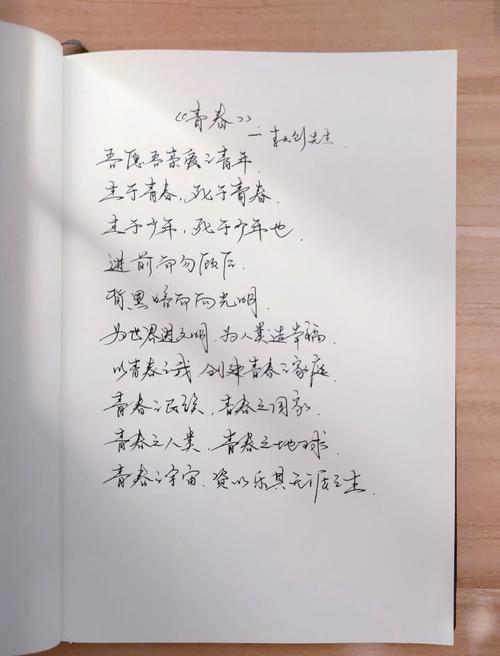 《青春》
—李大钊先生
吾愿吾亲爱之青年
生于青春，死于青春.
生于少年，死于少年也.
进前而勿顾后.
背黑暗而向光明.
为世界进文明，为人类造幸福.
以青春之我 创建青春之家庭.
青春之民族，青春之国家.
青春之人类，青春之地球.
青春之宇宙，资以乐其无涯之生.